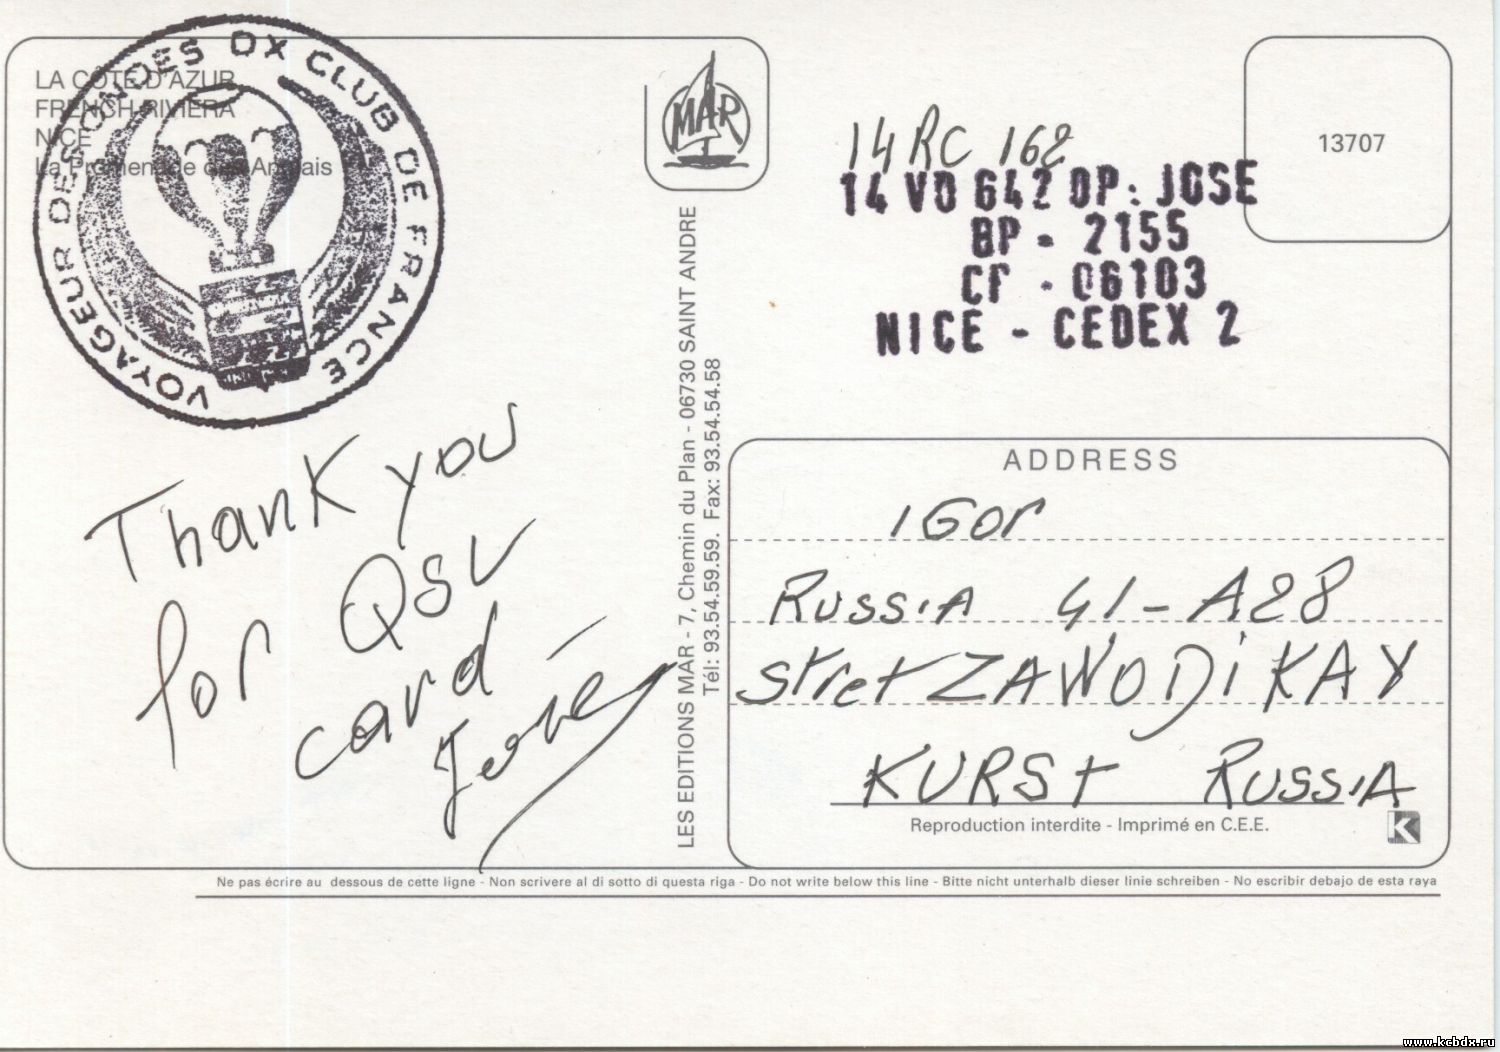 VOYAGEUR DES ONDES DX CLUB DE FRANCE
LA CÔTE D'AZUR
FRENCH RIVIERA
NICE
La Promenade des Anglais
MAR
14 RC 162
14 VO 642 OP: JOSE
BP - 2155
CF - 06103
NICE - CEDEX 2
13707
Thank you
for QSL
card -
LES EDITIONS MAR - 7, Chemin du Plan - 06730 SAINT ANDRE
Tél: 93.54.59.59. Fax: 93.54.54.58
ADDRESS
IGOR
RUSSIA 41-A28
stret ZAWODIKAY
KURST RUSSIA
Reproduction interdite - Imprimé en C.E.E.
K
Ne pas écrire au dessous de cette ligne - Non scrivere al di sotto di questa riga - Do not write below this line - Bitte nicht unterhalb dieser linie schreiben - No escribir debajo de esta raya
www.kcbdx.ru